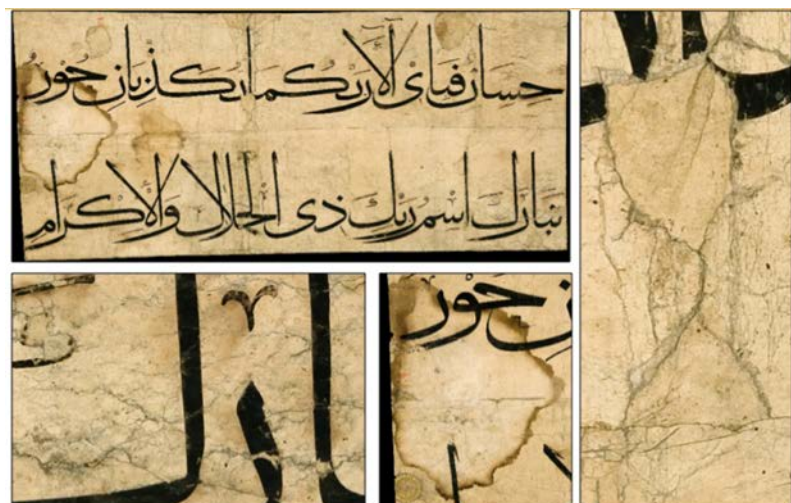 حسان فبای آلآ ربكما تكذبان حور
تبارك اسم ربك ذی الجلال والاكرام
حور